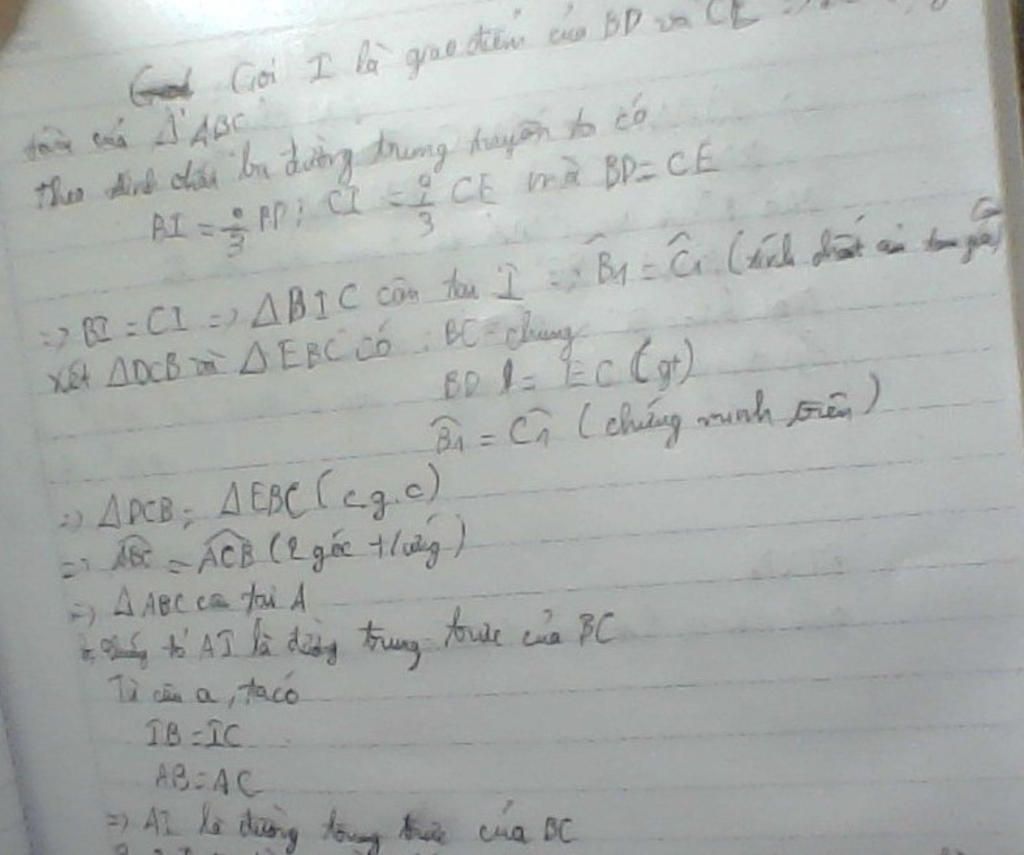 Gọi I là giao điểm của BD và CE
tâm của Δ ABC
theo tính chất ba đường trung tuyến ta có
BI = 2/3 BD; CI = 2/3 CE mà BD = CE
=> BI = CI => ΔBIC cân tại I => B̂1 = Ĉ1 (tính chất của tam giác
xét ΔDCB và ΔEBC có: BC chung
BD = EC (gt)
B̂1 = Ĉ1 (chứng minh trên)
=> ΔDCB = ΔEBC (c.g.c)
=> ABĈ = ACB̂ (2 góc t/ứng)
=> ΔABC cân tại A
AI là đường trung trực của BC
Từ câu a, ta có
IB = IC
AB = AC
=> AI là đường trung trực của BC